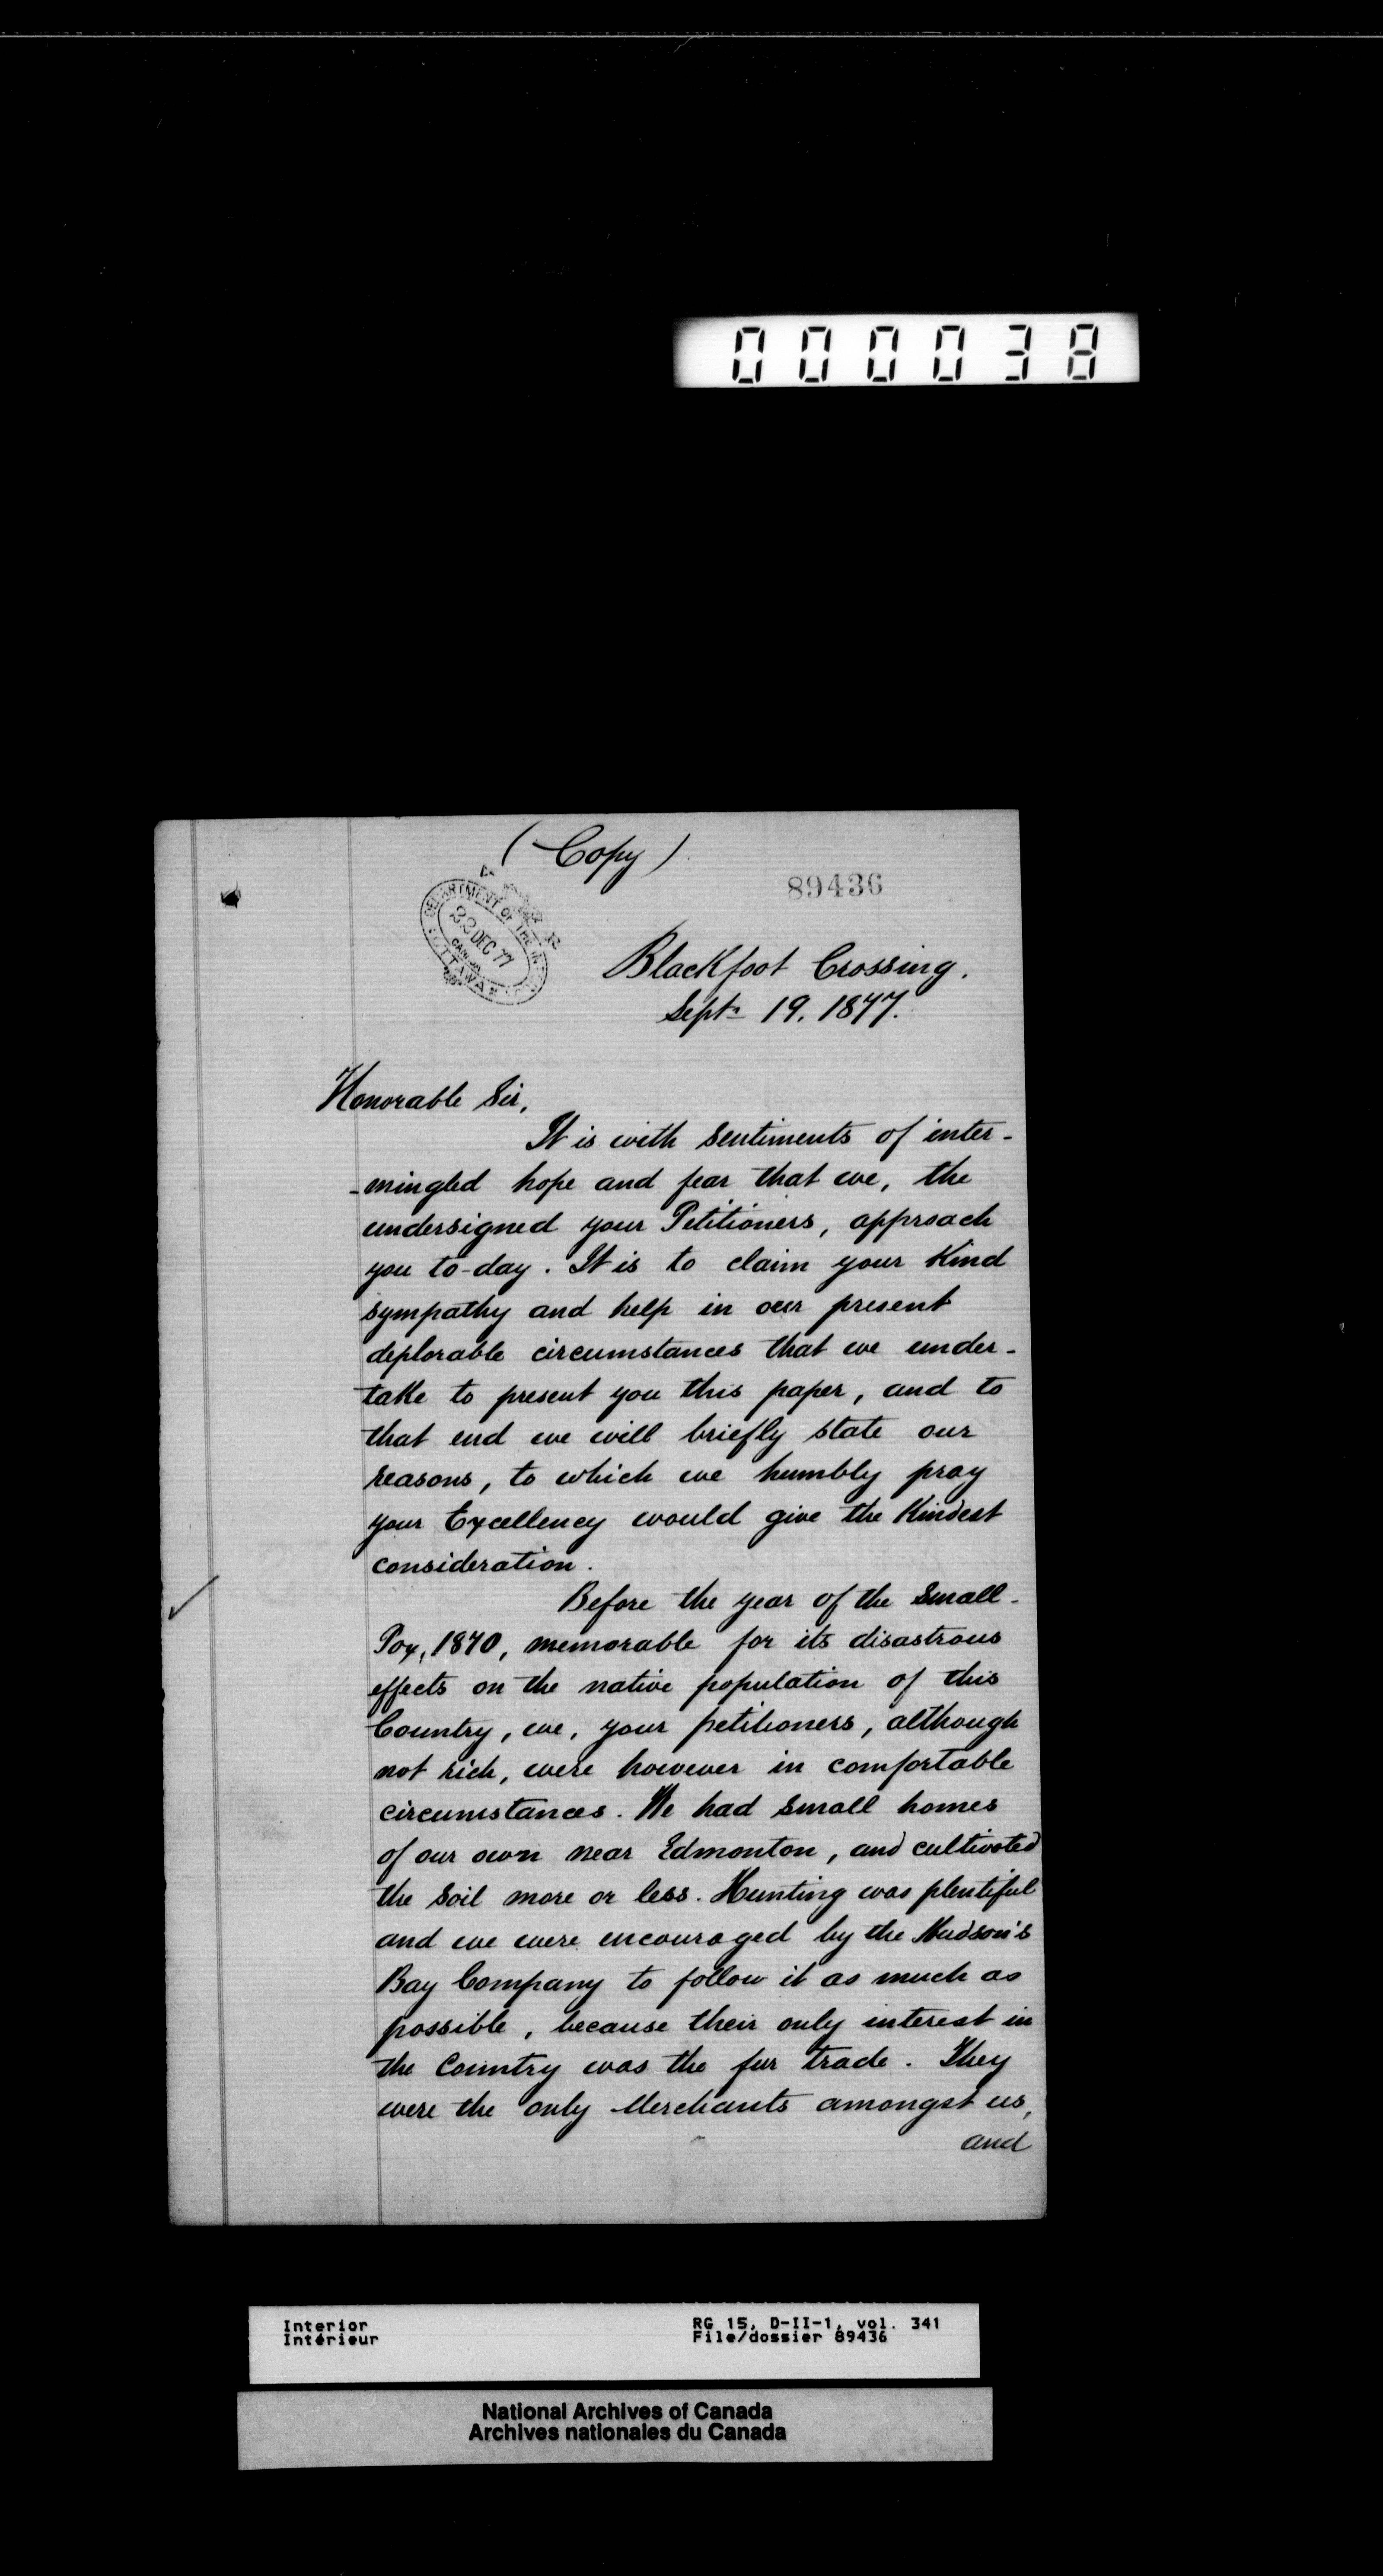 000038
(Copy)
89436
DEPARTMENT OF THE
22 DEC 77
CANADA
OTTAWA
Blackfoot Crossing.
Sept. 19. 1877.
Honorable Sir,
It is with sentiments of inter-
-mingled hope and fear that we, the
undersigned your Petitioners, approach
you to-day. It is to claim your Kind
sympathy and help in our present
deplorable circumstances that we under-
take to present you this paper, and to
that end we will briefly state our
reasons, to which we humbly pray
your Excellency would give the Kindest
consideration.
Before the year of the Small-
Pox, 1870, memorable for its disastrous
effects on the native population of this
Country, we, your petitioners, although
not rich, were however in comfortable
circumstances. We had small homes
of our own near Edmonton, and cultivated
the soil more or less. Hunting was plentiful
and we were encouraged by the Hudson's
Bay Company to follow it as much as
possible, because their only interest in
the Country was the fur trade. They
were the only Merchants amongst us,
and
Interior RG 15, D-II-1, vol. 341
Intérieur File/dossier 89436
National Archives of Canada
Archives nationales du Canada